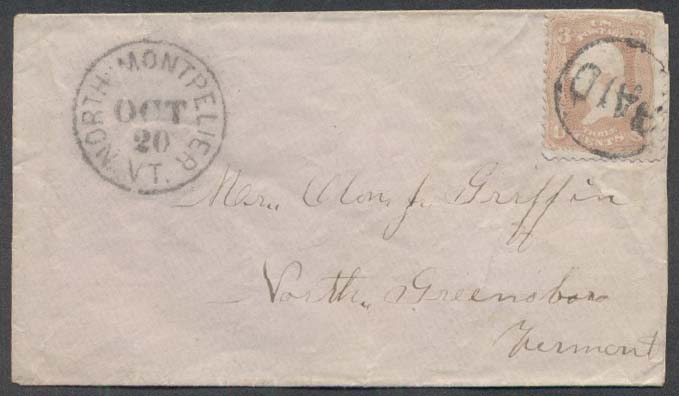 NORTH MONTPELIER
OCT
20
VT.
3 3
PAID
THREE
CENTS
Griffin
North Greensboro
Vermont